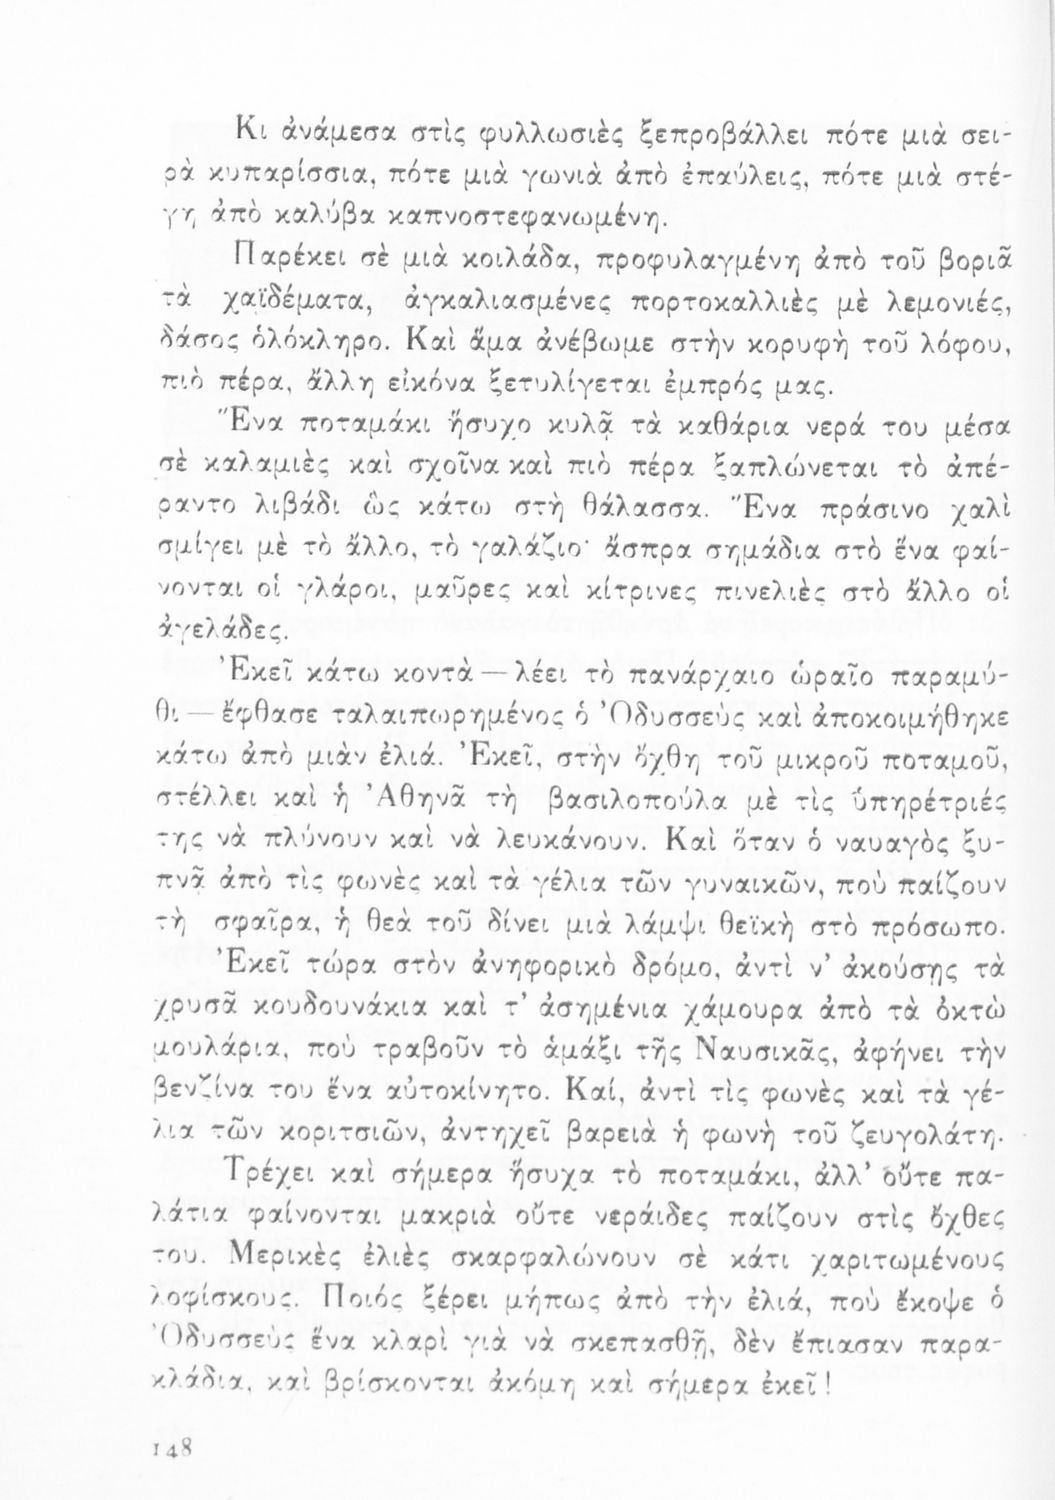 Κι ἀνάμεσα στὶς φυλλωσιὲς ξεπροβάλλει πότε μιὰ σει-
ρὰ κυπαρίσσια, πότε μιὰ γωνιὰ ἀπὸ ἐπαύλεις, πότε μιὰ στέ-
γη ἀπὸ καλύβα καπνοστεφανωμένη.
Παρέκει σὲ μιὰ κοιλάδα, προφυλαγμένη ἀπὸ τοῦ βοριᾶ
τὰ χαϊδέματα, ἀγκαλιασμένες πορτοκαλλιὲς μὲ λεμονιές,
δάσος ὁλόκληρο. Καὶ ἅμα ἀνέβωμε στὴν κορυφὴ τοῦ λόφου,
πιὸ πέρα, ἄλλη εἰκόνα ξετυλίγεται ἐμπρός μας.
Ἕνα ποταμάκι ἥσυχο κυλᾷ τὰ καθάρια νερά του μέσα
σὲ καλαμιὲς καὶ σχοῖνα καὶ πιὸ πέρα ξαπλώνεται τὸ ἀπέ-
ραντο λιβάδι ὣς κάτω στὴ θάλασσα. Ἕνα πράσινο χαλὶ
σμίγει μὲ τὸ ἄλλο, τὸ γαλάζιο· ἄσπρα σημάδια στὸ ἕνα φαί-
νονται οἱ γλάροι, μαῦρες καὶ κίτρινες πινελιὲς στὸ ἄλλο οἱ
ἀγελάδες.
Ἐκεῖ κάτω κοντὰ — λέει τὸ πανάρχαιο ὡραῖο παραμύ-
θι — ἔφθασε ταλαιπωρημένος ὁ Ὀδυσσεὺς καὶ ἀποκοιμήθηκε
κάτω ἀπὸ μιὰν ἐλιά. Ἐκεῖ, στὴν ὄχθη τοῦ μικροῦ ποταμοῦ,
στέλλει καὶ ἡ Ἀθηνᾶ τὴ βασιλοπούλα μὲ τὶς ὑπηρέτριές
της νὰ πλύνουν καὶ νὰ λευκάνουν. Καὶ ὅταν ὁ ναυαγὸς ξυ-
πνᾷ ἀπὸ τὶς φωνὲς καὶ τὰ γέλια τῶν γυναικῶν, ποὺ παίζουν
τὴ σφαῖρα, ἡ θεὰ τοῦ δίνει μιὰ λάμψι θεϊκὴ στὸ πρόσωπο.
Ἐκεῖ τώρα στὸν ἀνηφορικὸ δρόμο, ἀντὶ ν' ἀκούσῃς τὰ
χρυσᾶ κουδουνάκια καὶ τ' ἀσημένια χάμουρα ἀπὸ τὰ ὀκτὼ
μουλάρια, ποὺ τραβοῦν τὸ ἁμάξι τῆς Ναυσικᾶς, ἀφήνει τὴν
βενζίνα του ἕνα αὐτοκίνητο. Καί, ἀντὶ τὶς φωνὲς καὶ τὰ γέ-
λια τῶν κοριτσιῶν, ἀντηχεῖ βαρειὰ ἡ φωνὴ τοῦ ζευγολάτη.
Τρέχει καὶ σήμερα ἥσυχα τὸ ποταμάκι, ἀλλ' οὔτε πα-
λάτια φαίνονται μακριὰ οὔτε νεράιδες παίζουν στὶς ὄχθες
του. Μερικὲς ἐλιὲς σκαρφαλώνουν σὲ κάτι χαριτωμένους
λοφίσκους. Ποιός ξέρει μήπως ἀπὸ τὴν ἐλιά, ποὺ ἔκοψε ὁ
Ὀδυσσεὺς ἕνα κλαρὶ γιὰ νὰ σκεπασθῇ, δὲν ἔπιασαν παρα-
κλάδια, καὶ βρίσκονται ἀκόμη καὶ σήμερα ἐκεῖ!
148